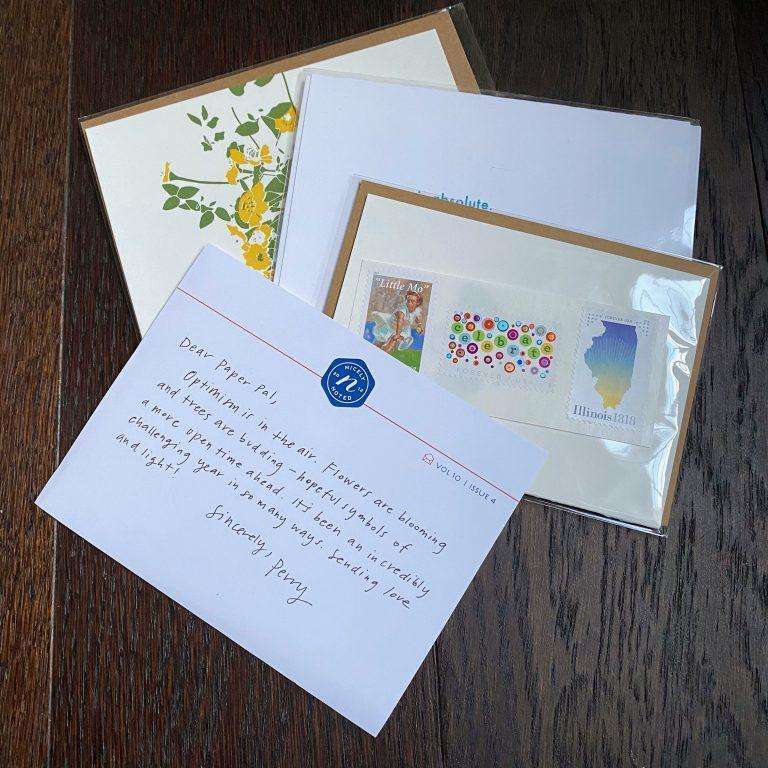 absolute.
"Little Mo"
celebrate
celebrate
FOREVER USA
Illinois 1818
NICELY
20 n 12
NOTED
VOL 10 | ISSUE 4
Dear Paper Pal,
Optimism is in the air. Flowers are blooming
and trees are budding — hopeful symbols of
a more open time ahead. It's been an incredibly
challenging year in so many ways. Sending love
and light!
Sincerely, Perry